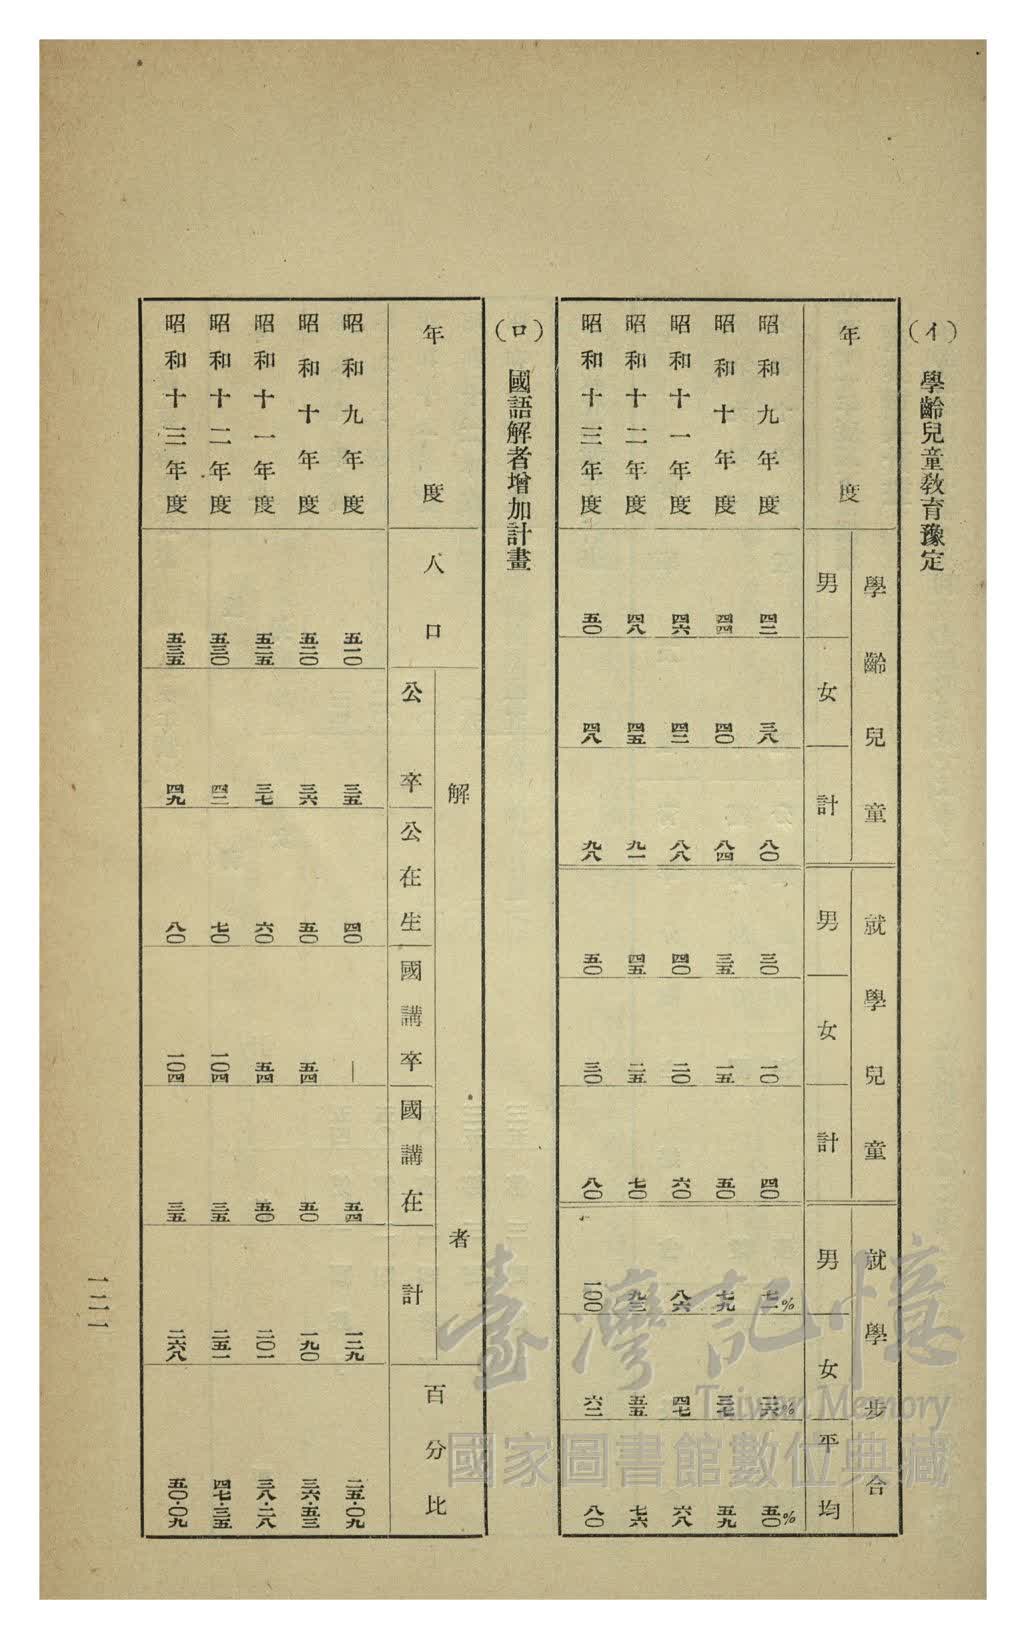 (イ) 學齡兒童敎育豫定
年度 學齡兒童 就學兒童 就學步合
男 女 計 男 女 計 男 女 平均
昭和九年度 四二 三八 八〇 三〇 一〇 四〇 七一% 二六% 五〇%
昭和十年度 四四 四〇 八四 三五 一五 五〇 七九 三七 五九
昭和十一年度 四六 四二 八八 四〇 二〇 六〇 八六 四七 六八
昭和十二年度 四八 四五 九一 四五 二五 七〇 九三 五五 七六
昭和十三年度 五〇 四八 九八 五〇 三〇 八〇 一〇〇 六二 八〇
(ロ) 國語解者增加計畫
年度 人口 解者 百分比
公卒 公在生 國講卒 國講在 計
昭和九年度 五一〇 三五 四〇 — 五四 一二九 二五・〇九
昭和十年度 五二〇 三六 五〇 五四 五〇 一九〇 三六・五三
昭和十一年度 五二五 三七 六〇 五四 五〇 二〇一 三八・二八
昭和十二年度 五三〇 四二 七〇 一〇四 三五 二五一 四七・三五
昭和十三年度 五三五 四九 八〇 一〇四 三五 二六八 五〇・〇九
臺灣記憶
Taiwan Memory
國家圖書館數位典藏